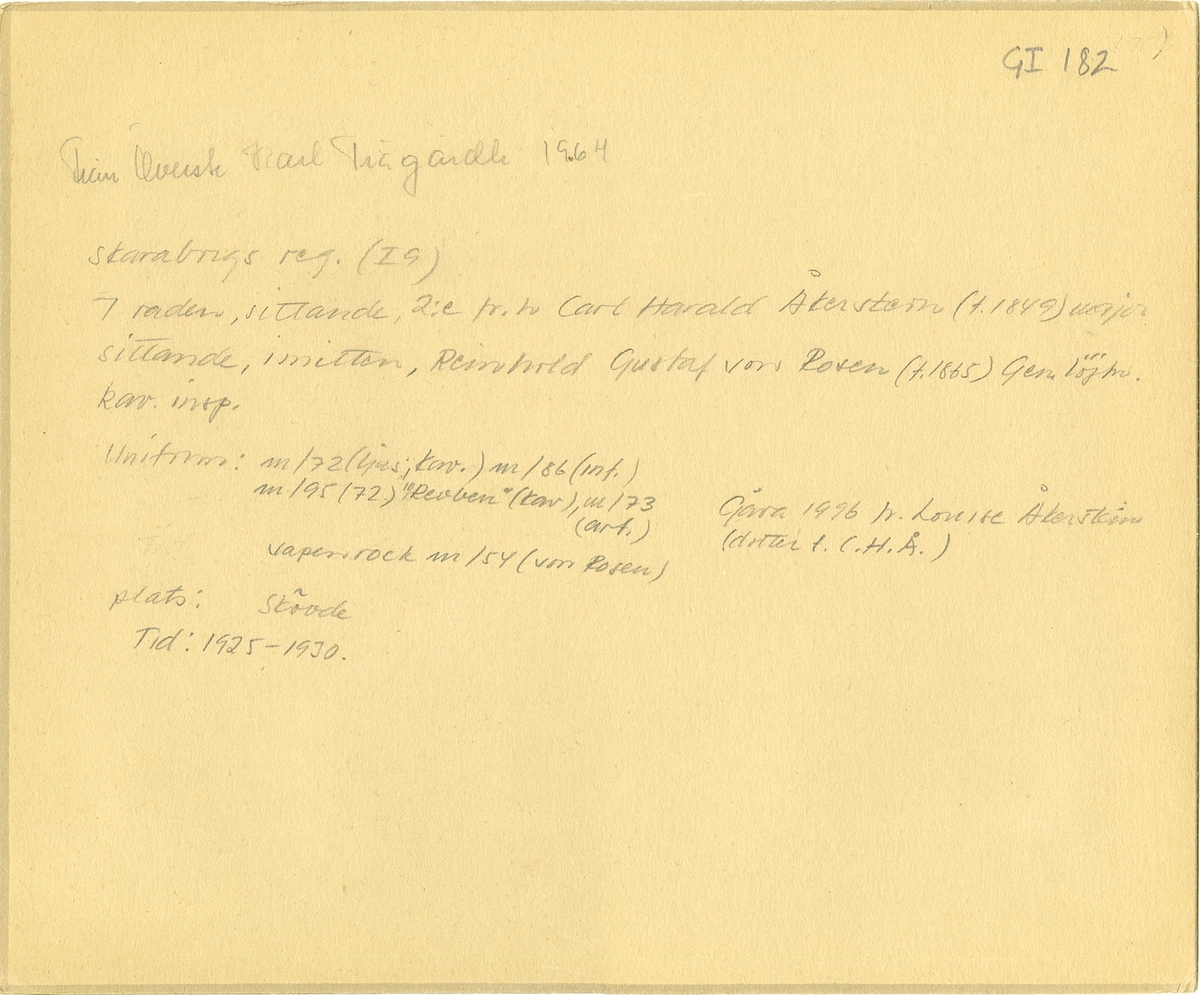 GI 182
Från Överste Karl Trägårdh 1964
Skarabrigs reg. (I9)
I raden, sittande, 2:e fr. h Carl Harald Åkerstein (f. 1849) major
sittande, i mitten, Reinhold Gustaf von Rosen (f. 1865) Gen. löjtn.
kav. insp.
Uniform: m/72 (ljus, kav.) m/86 (inf.)
m/95 (72) "Revben" (kav), m/73
(art.)
vapenrock m/54 (von Rosen)
Gåva 1996 fr. Louise Åkerstein
(dotter t. C.H.Å.)
plats: Skövde
Tid: 1925-1930.